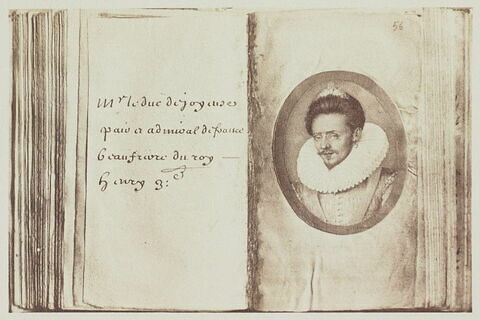 Mr le duc de joyeuse
pair et admiral de france
beaufrere du roy
henry 3.e
56